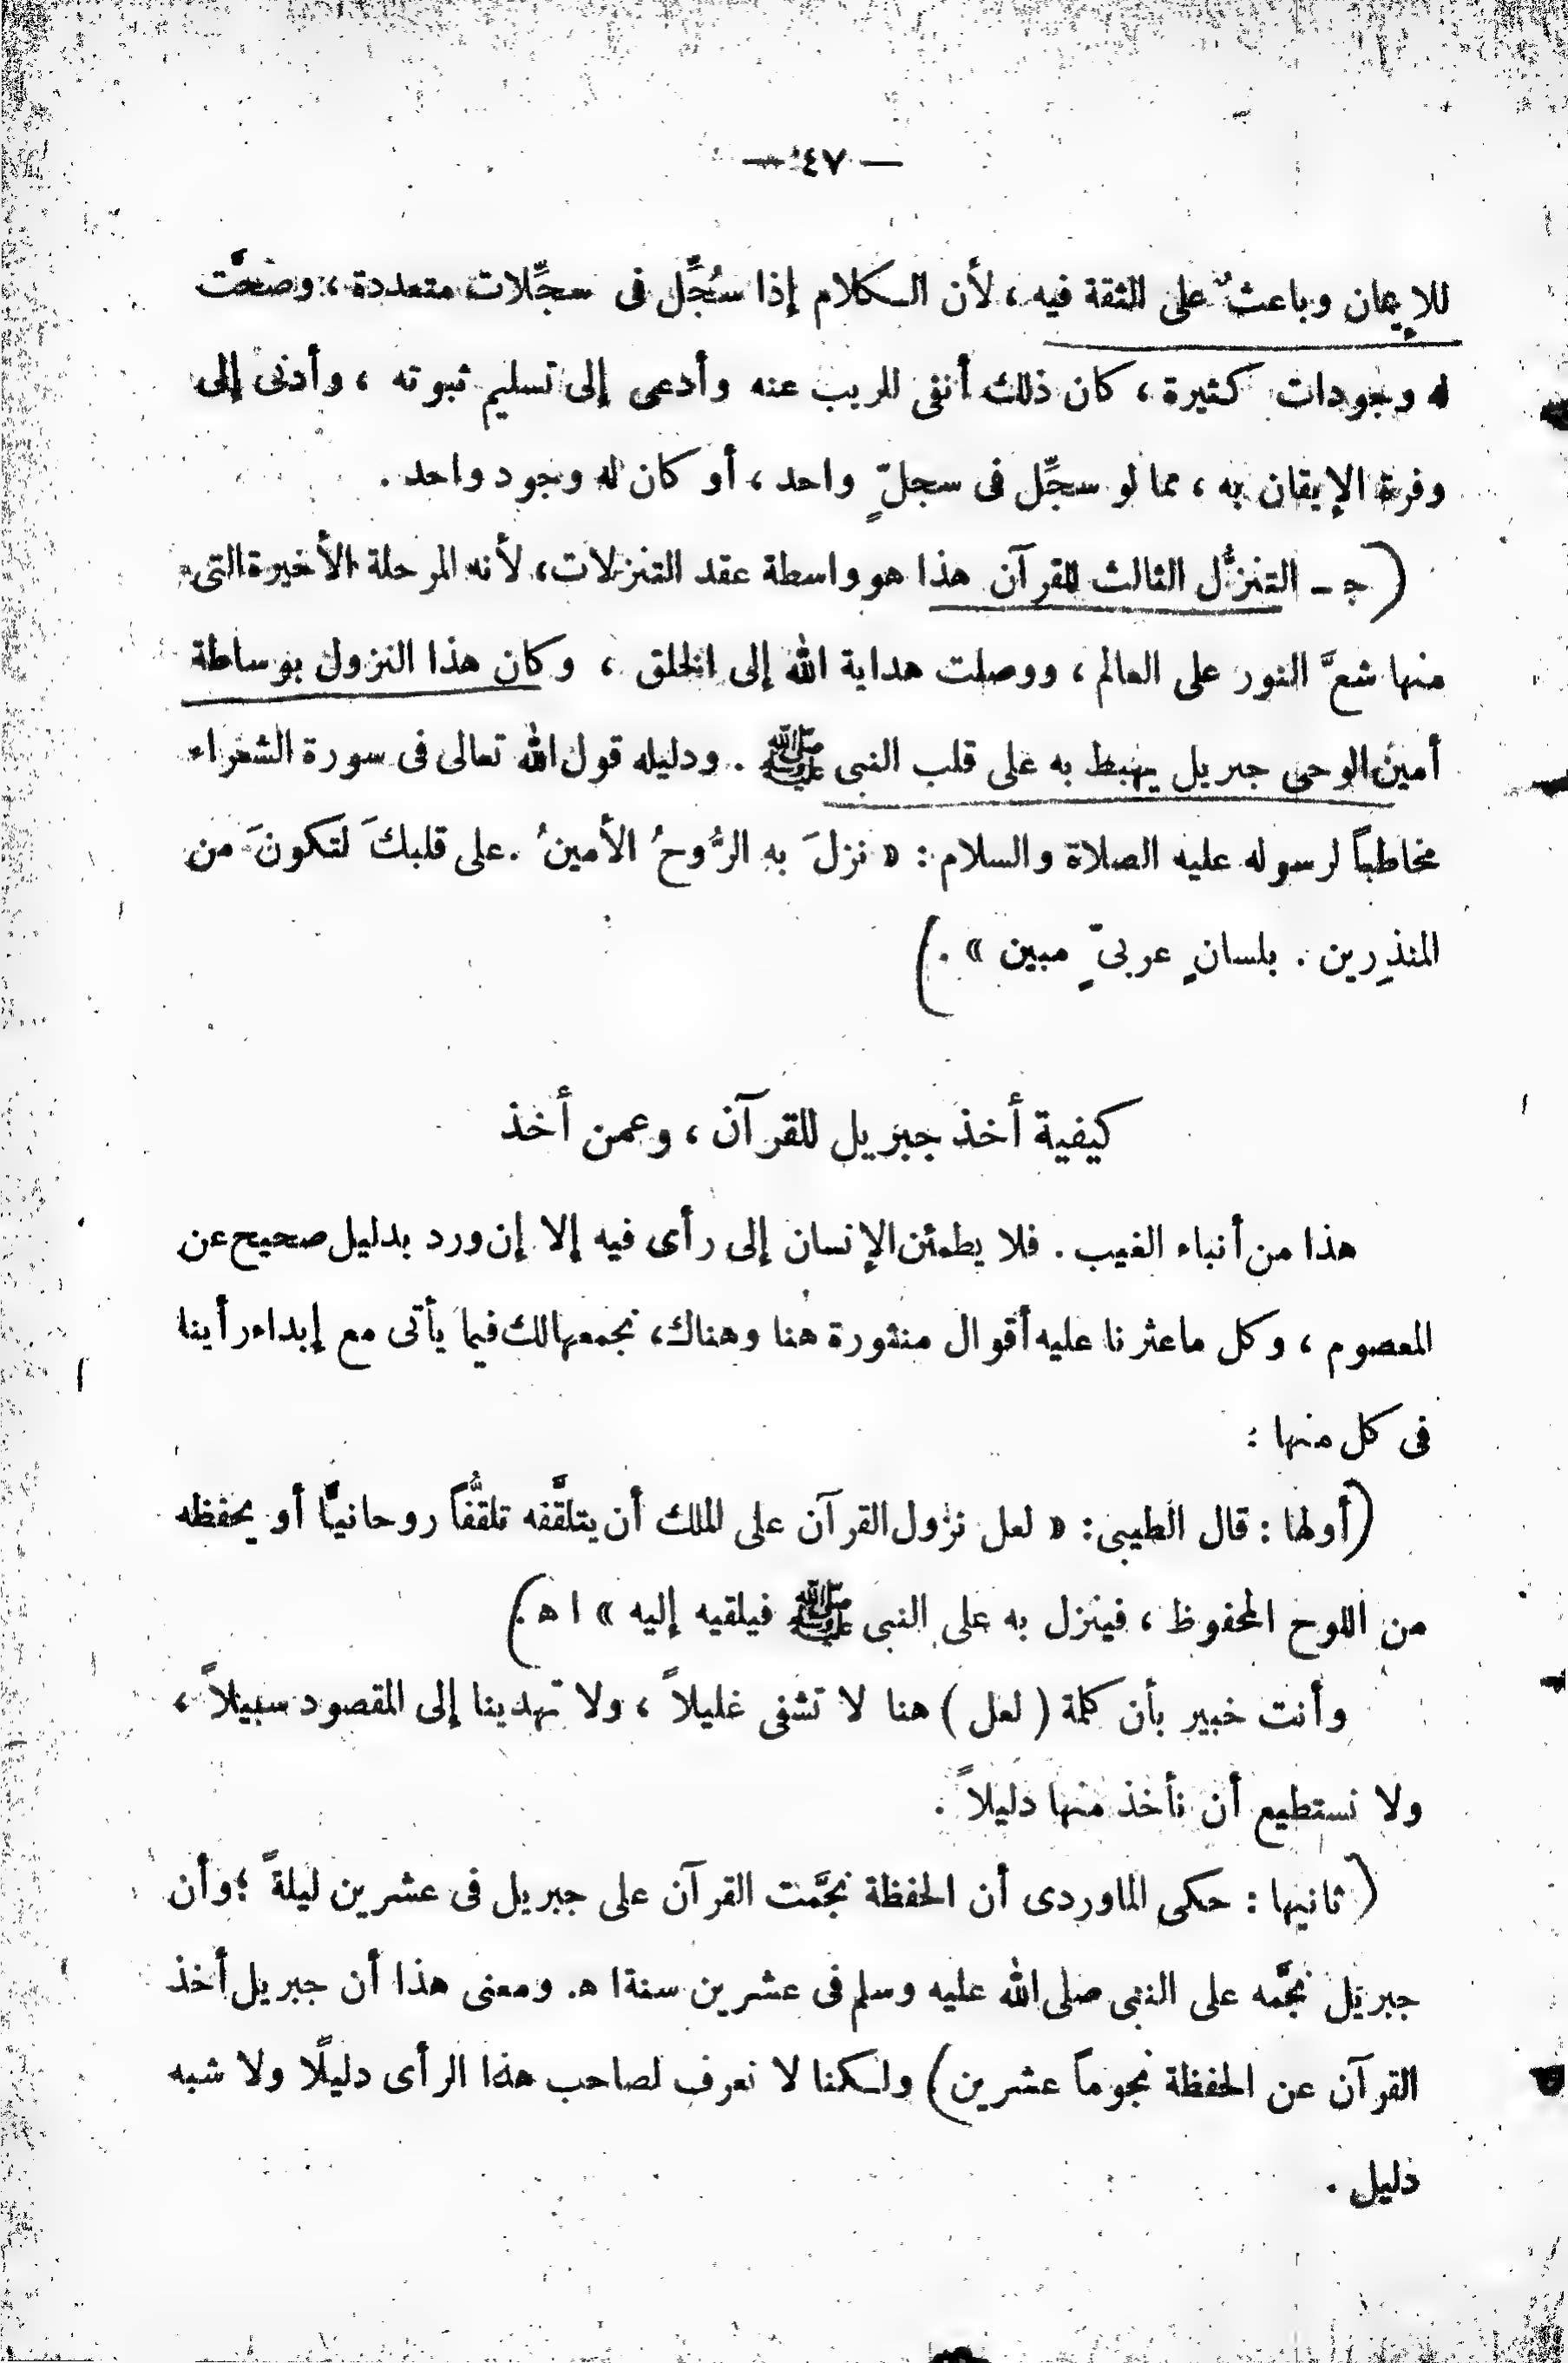 — ٤٧ —
للإيمان وباعثٌ على الثقة فيه ، لأن الكلام إذا سُجِّل فى سجِّلات متعددة ، وصحَّت
له وجودات كثيرة ، كان ذلك أنفى للريب عنه وأدعى إلى تسليم ثبوته ، وأدنى إلى
وفرة الإيقان به ، مما لو سجِّل فى سجلٍّ واحد ، أو كان له وجود واحد .
( جـ – التنزُّل الثالث للقرآن هذا هو واسطة عقد التنزلات ، لأنه المرحلة الأخيرة التى
منها شعَّ النور على العالم ، ووصلت هداية الله إلى الخلق ، وكان هذا النزول بوساطة
أمين الوحى جبريل يهبط به على قلب النبى ﷺ . ودليله قول الله تعالى فى سورة الشعراء
مخاطباً لرسوله عليه الصلاة والسلام : « نزلَ به الرُّوحُ الأمينُ . على قلبكَ لتكونَ من
المنذِرين . بلسانٍ عربىٍّ مبين » . )
كيفية أخذ جبريل للقرآن ، وعمن أخذ
هذا من أنباء الغيب . فلا يطمئن الإنسان إلى رأى فيه إلا إن ورد بدليل صحيح عن
المعصوم ، وكل ما عثرنا عليه أقوال منثورة هنا وهناك ، نجمعها لك فيما يأتى مع إبداء رأينا
فى كل منها :
( أولها : قال الطيبى : « لعل نزول القرآن على الملك أن يتلقَّفه تلقُّفاً روحانيًّا أو يحفظه
من اللوح المحفوظ ، فينزل به على النبى ﷺ فيلقيه إليه » ا ه . )
وأنت خبير بأن كلمة ( لعل ) هنا لا تشفى غليلاً ، ولا تهدينا إلى المقصود سبيلاً ،
ولا نستطيع أن نأخذ منها دليلاً .
( ثانيها : حكى الماوردى أن الحفظة نجَّمت القرآن على جبريل فى عشرين ليلةً ؛ وأن
جبريل نجَّمه على النبى صلى الله عليه وسلم فى عشرين سنة ا ه . ومعنى هذا أن جبريل أخذ
القرآن عن الحفظة نجوماً عشرين ) ولكنا لا نعرف لصاحب هذا الرأى دليلًا ولا شبه
دليل .